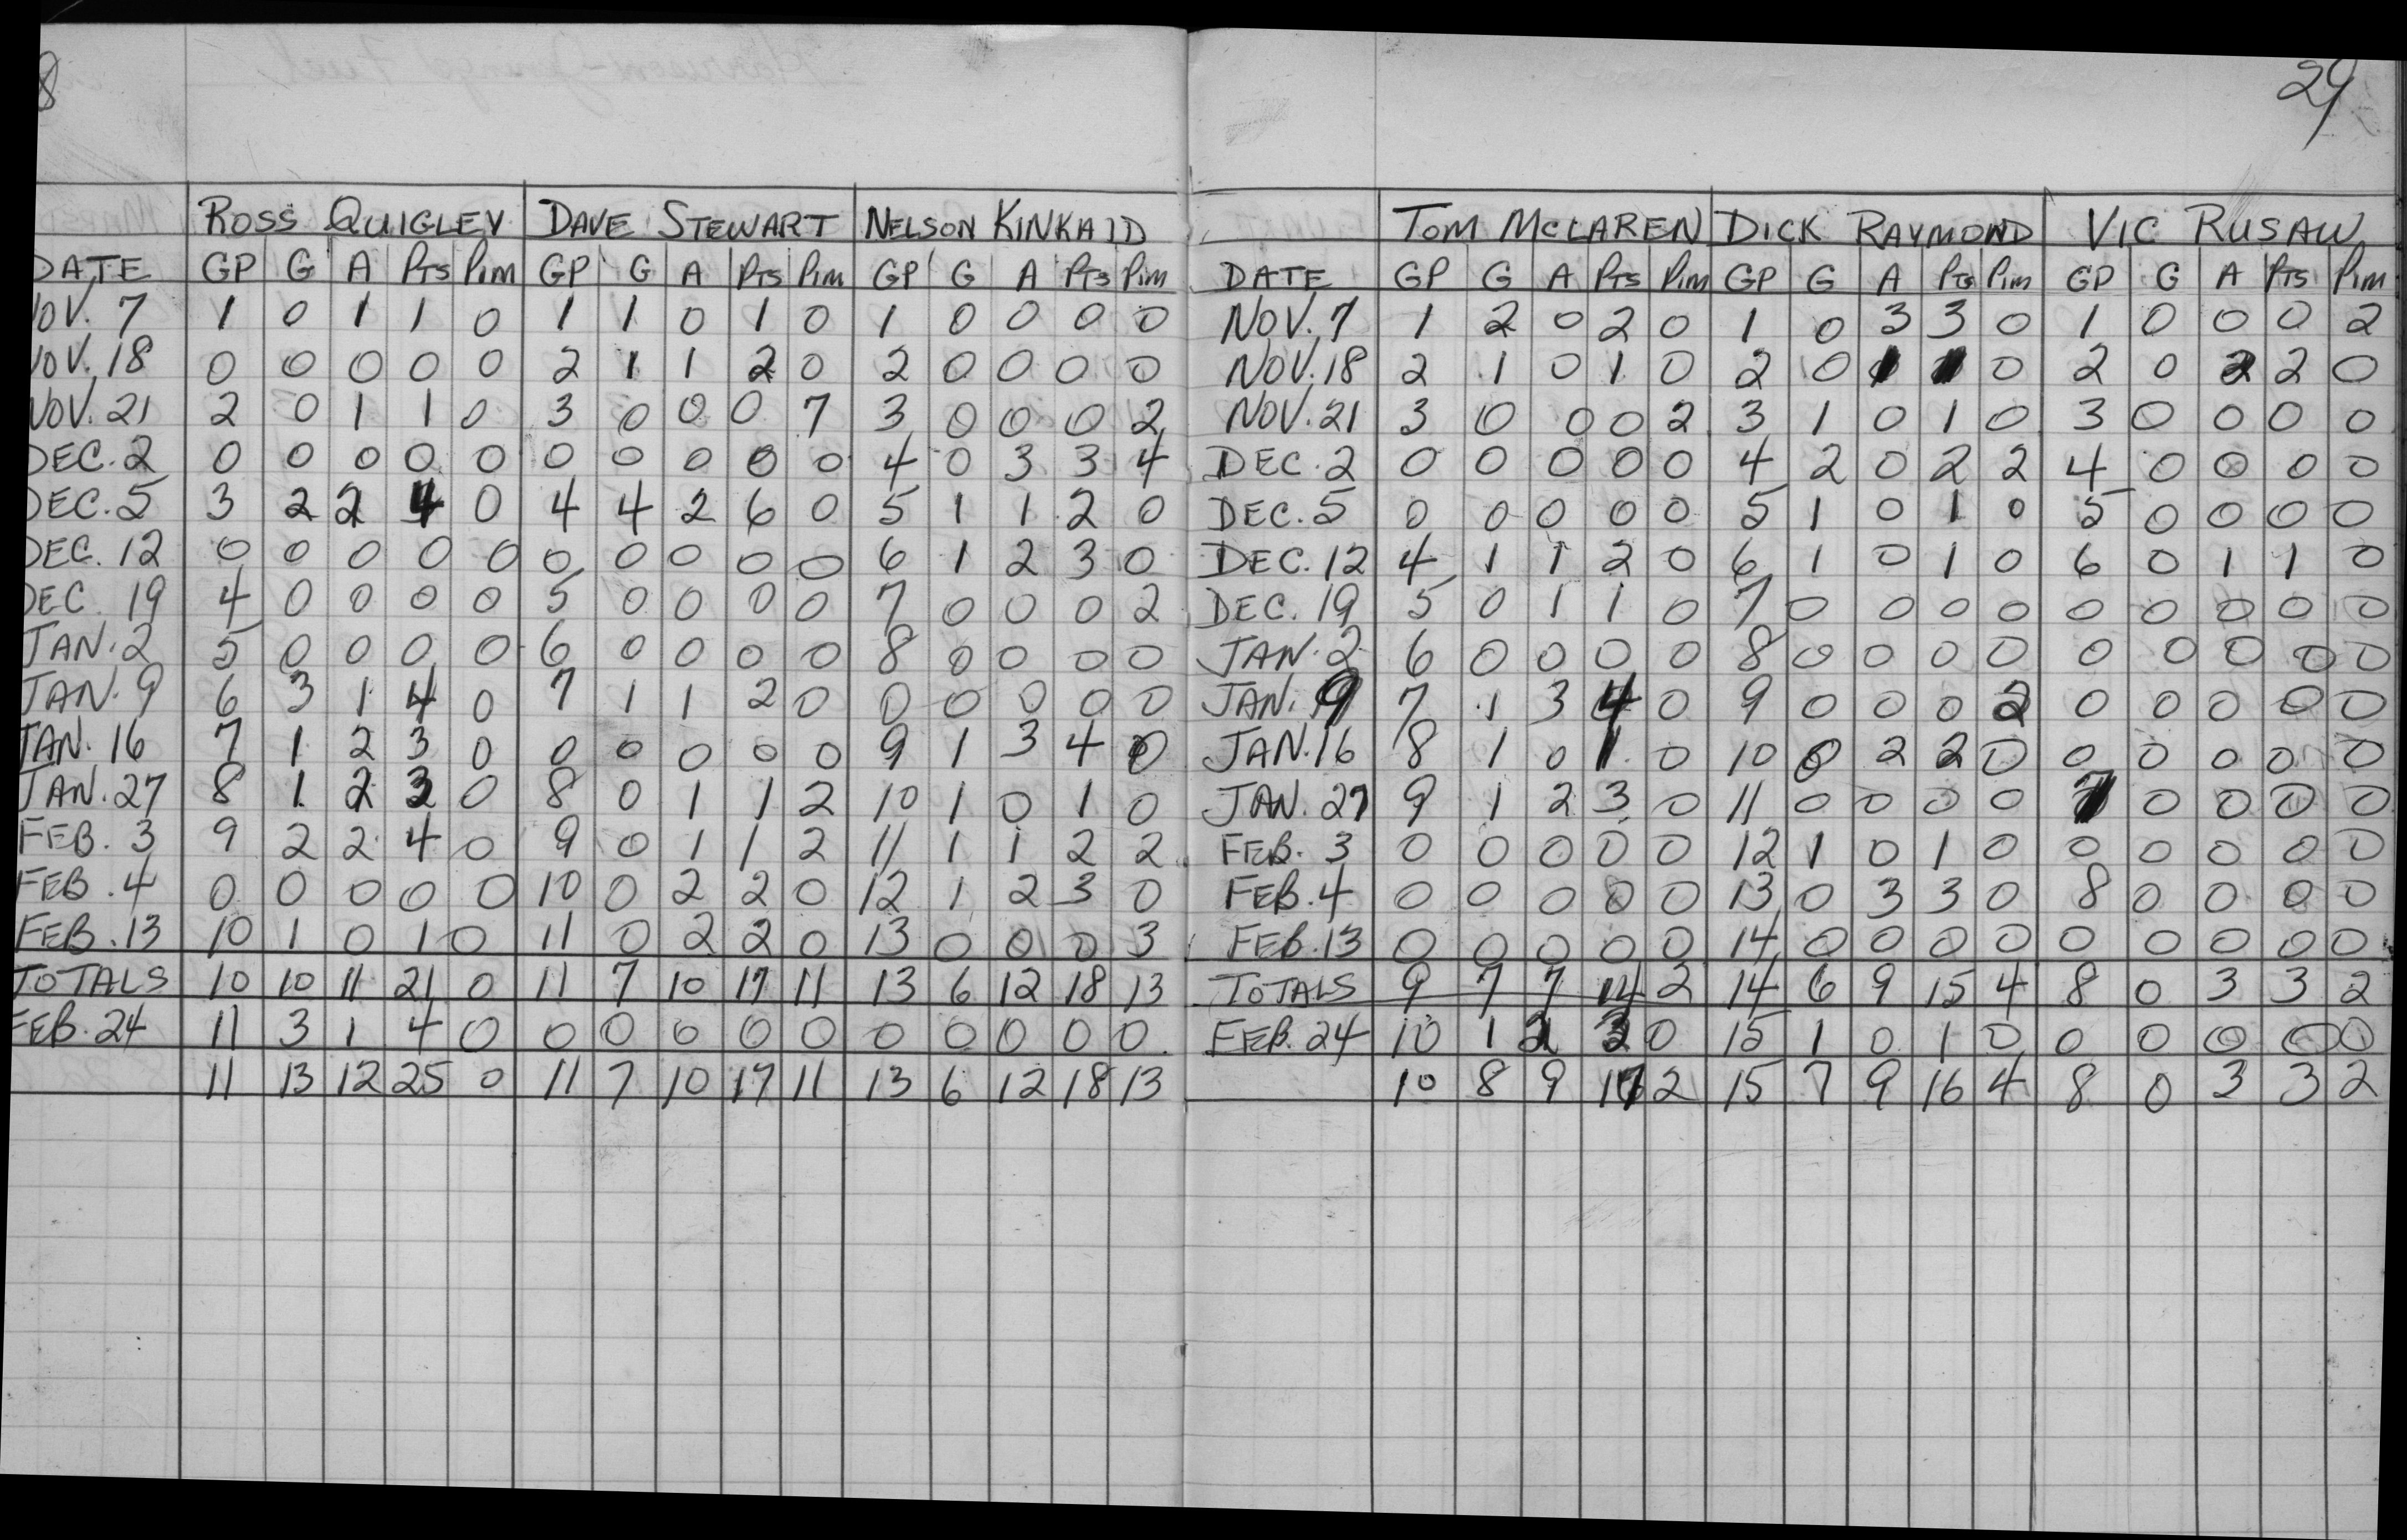 8
ROSS QUIGLEY DAVE STEWART NELSON KINKAID
DATE GP G A Pts Pim GP G A Pts Pim GP G A Pts Pim
NOV. 7 1 0 1 1 0 1 1 0 1 0 1 0 0 0 0
NOV. 18 0 0 0 0 0 2 1 1 2 0 2 0 0 0 0
NOV. 21 2 0 1 1 0 3 0 0 0 7 3 0 0 0 2
DEC. 2 0 0 0 0 0 0 0 0 0 0 4 0 3 3 4
DEC. 5 3 2 2 4 0 4 4 2 6 0 5 1 1 2 0
DEC. 12 0 0 0 0 0 0 0 0 0 0 6 1 2 3 0
DEC. 19 4 0 0 0 0 5 0 0 0 0 7 0 0 0 2
JAN. 2 5 0 0 0 0 6 0 0 0 0 8 0 0 0 0
JAN. 9 6 3 1 4 0 7 1 1 2 0 0 0 0 0 0
JAN. 16 7 1 2 3 0 0 0 0 0 0 9 1 3 4 0
JAN. 27 8 1 2 3 0 8 0 1 1 2 10 1 0 1 0
FEB. 3 9 2 2 4 0 9 0 1 1 2 11 1 1 2 2
FEB. 4 0 0 0 0 0 10 0 2 2 0 12 1 2 3 0
FEB. 13 10 1 0 1 0 11 0 2 2 0 13 0 0 0 3
TOTALS 10 10 11 21 0 11 7 10 17 11 13 6 12 18 13
FEB. 24 11 3 1 4 0 0 0 0 0 0 0 0 0 0 0
11 13 12 25 0 11 7 10 17 11 13 6 12 18 13
29
TOM MCLAREN DICK RAYMOND VIC RUSAW
DATE GP G A Pts Pim GP G A Pts Pim GP G A Pts Pim
NOV. 7 1 2 0 2 0 1 0 3 3 0 1 0 0 0 2
NOV. 18 2 1 0 1 0 2 0 1 1 0 2 0 2 2 0
NOV. 21 3 0 0 0 2 3 1 0 1 0 3 0 0 0 0
DEC. 2 0 0 0 0 0 4 2 0 2 2 4 0 0 0 0
DEC. 5 0 0 0 0 0 5 1 0 1 0 5 0 0 0 0
DEC. 12 4 1 1 2 0 6 1 0 1 0 6 0 1 1 0
DEC. 19 5 0 1 1 0 7 0 0 0 0 0 0 0 0 0
JAN. 2 6 0 0 0 0 8 0 0 0 0 0 0 0 0 0
JAN. 9 7 1 3 4 0 9 0 0 0 2 0 0 0 0 0
JAN. 16 8 1 0 1 0 10 0 2 2 0 0 0 0 0 0
JAN. 27 9 1 2 3 0 11 0 0 0 0 7 0 0 0 0
FEB. 3 0 0 0 0 0 12 1 0 1 0 0 0 0 0 0
FEB. 4 0 0 0 0 0 13 0 3 3 0 8 0 0 0 0
FEB. 13 0 0 0 0 0 14 0 0 0 0 0 0 0 0 0
TOTALS 9 7 7 14 2 14 6 9 15 4 8 0 3 3 2
FEB. 24 10 1 2 3 0 15 1 0 1 0 0 0 0 0 0
10 8 9 17 2 15 7 9 16 4 8 0 3 3 2